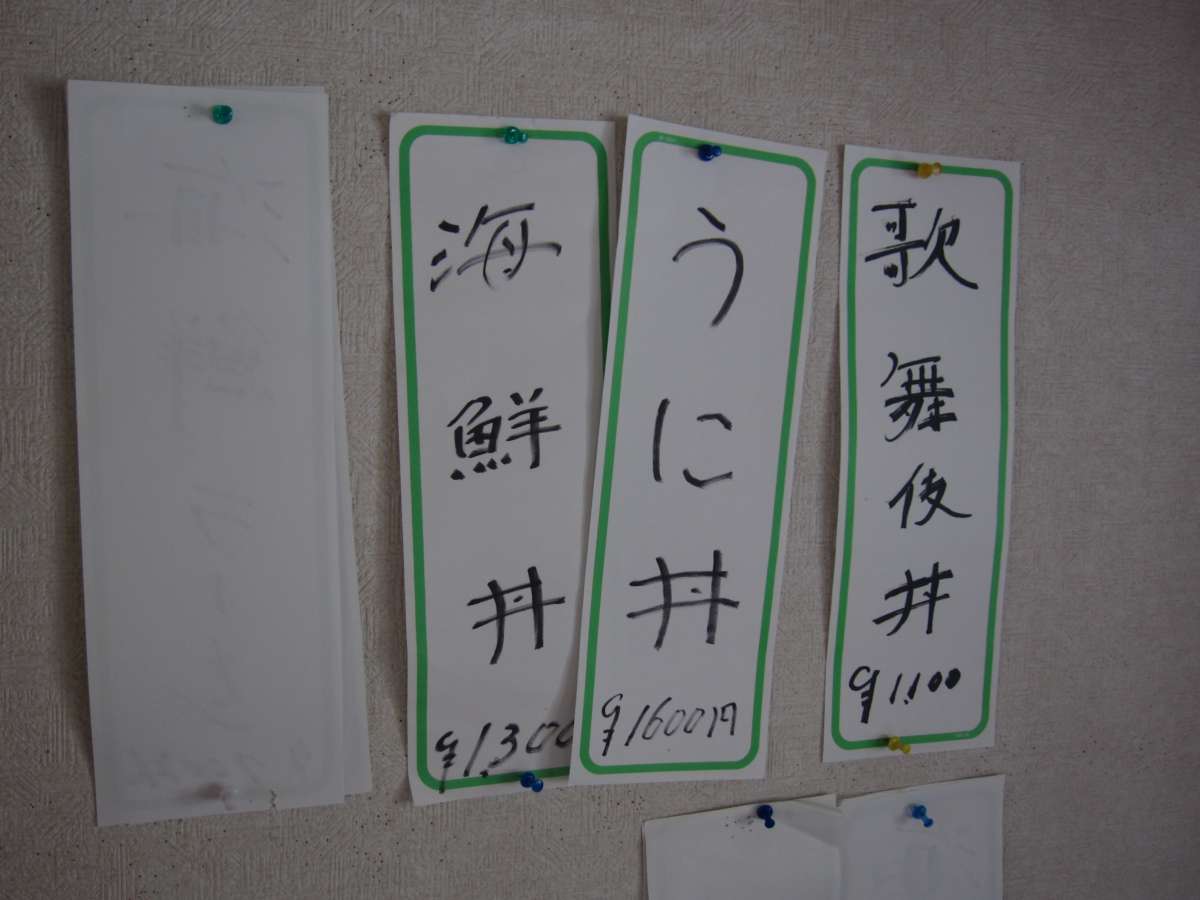 歌舞伎丼
¥1,100
うに丼
¥1600円
海鮮丼
¥1,300